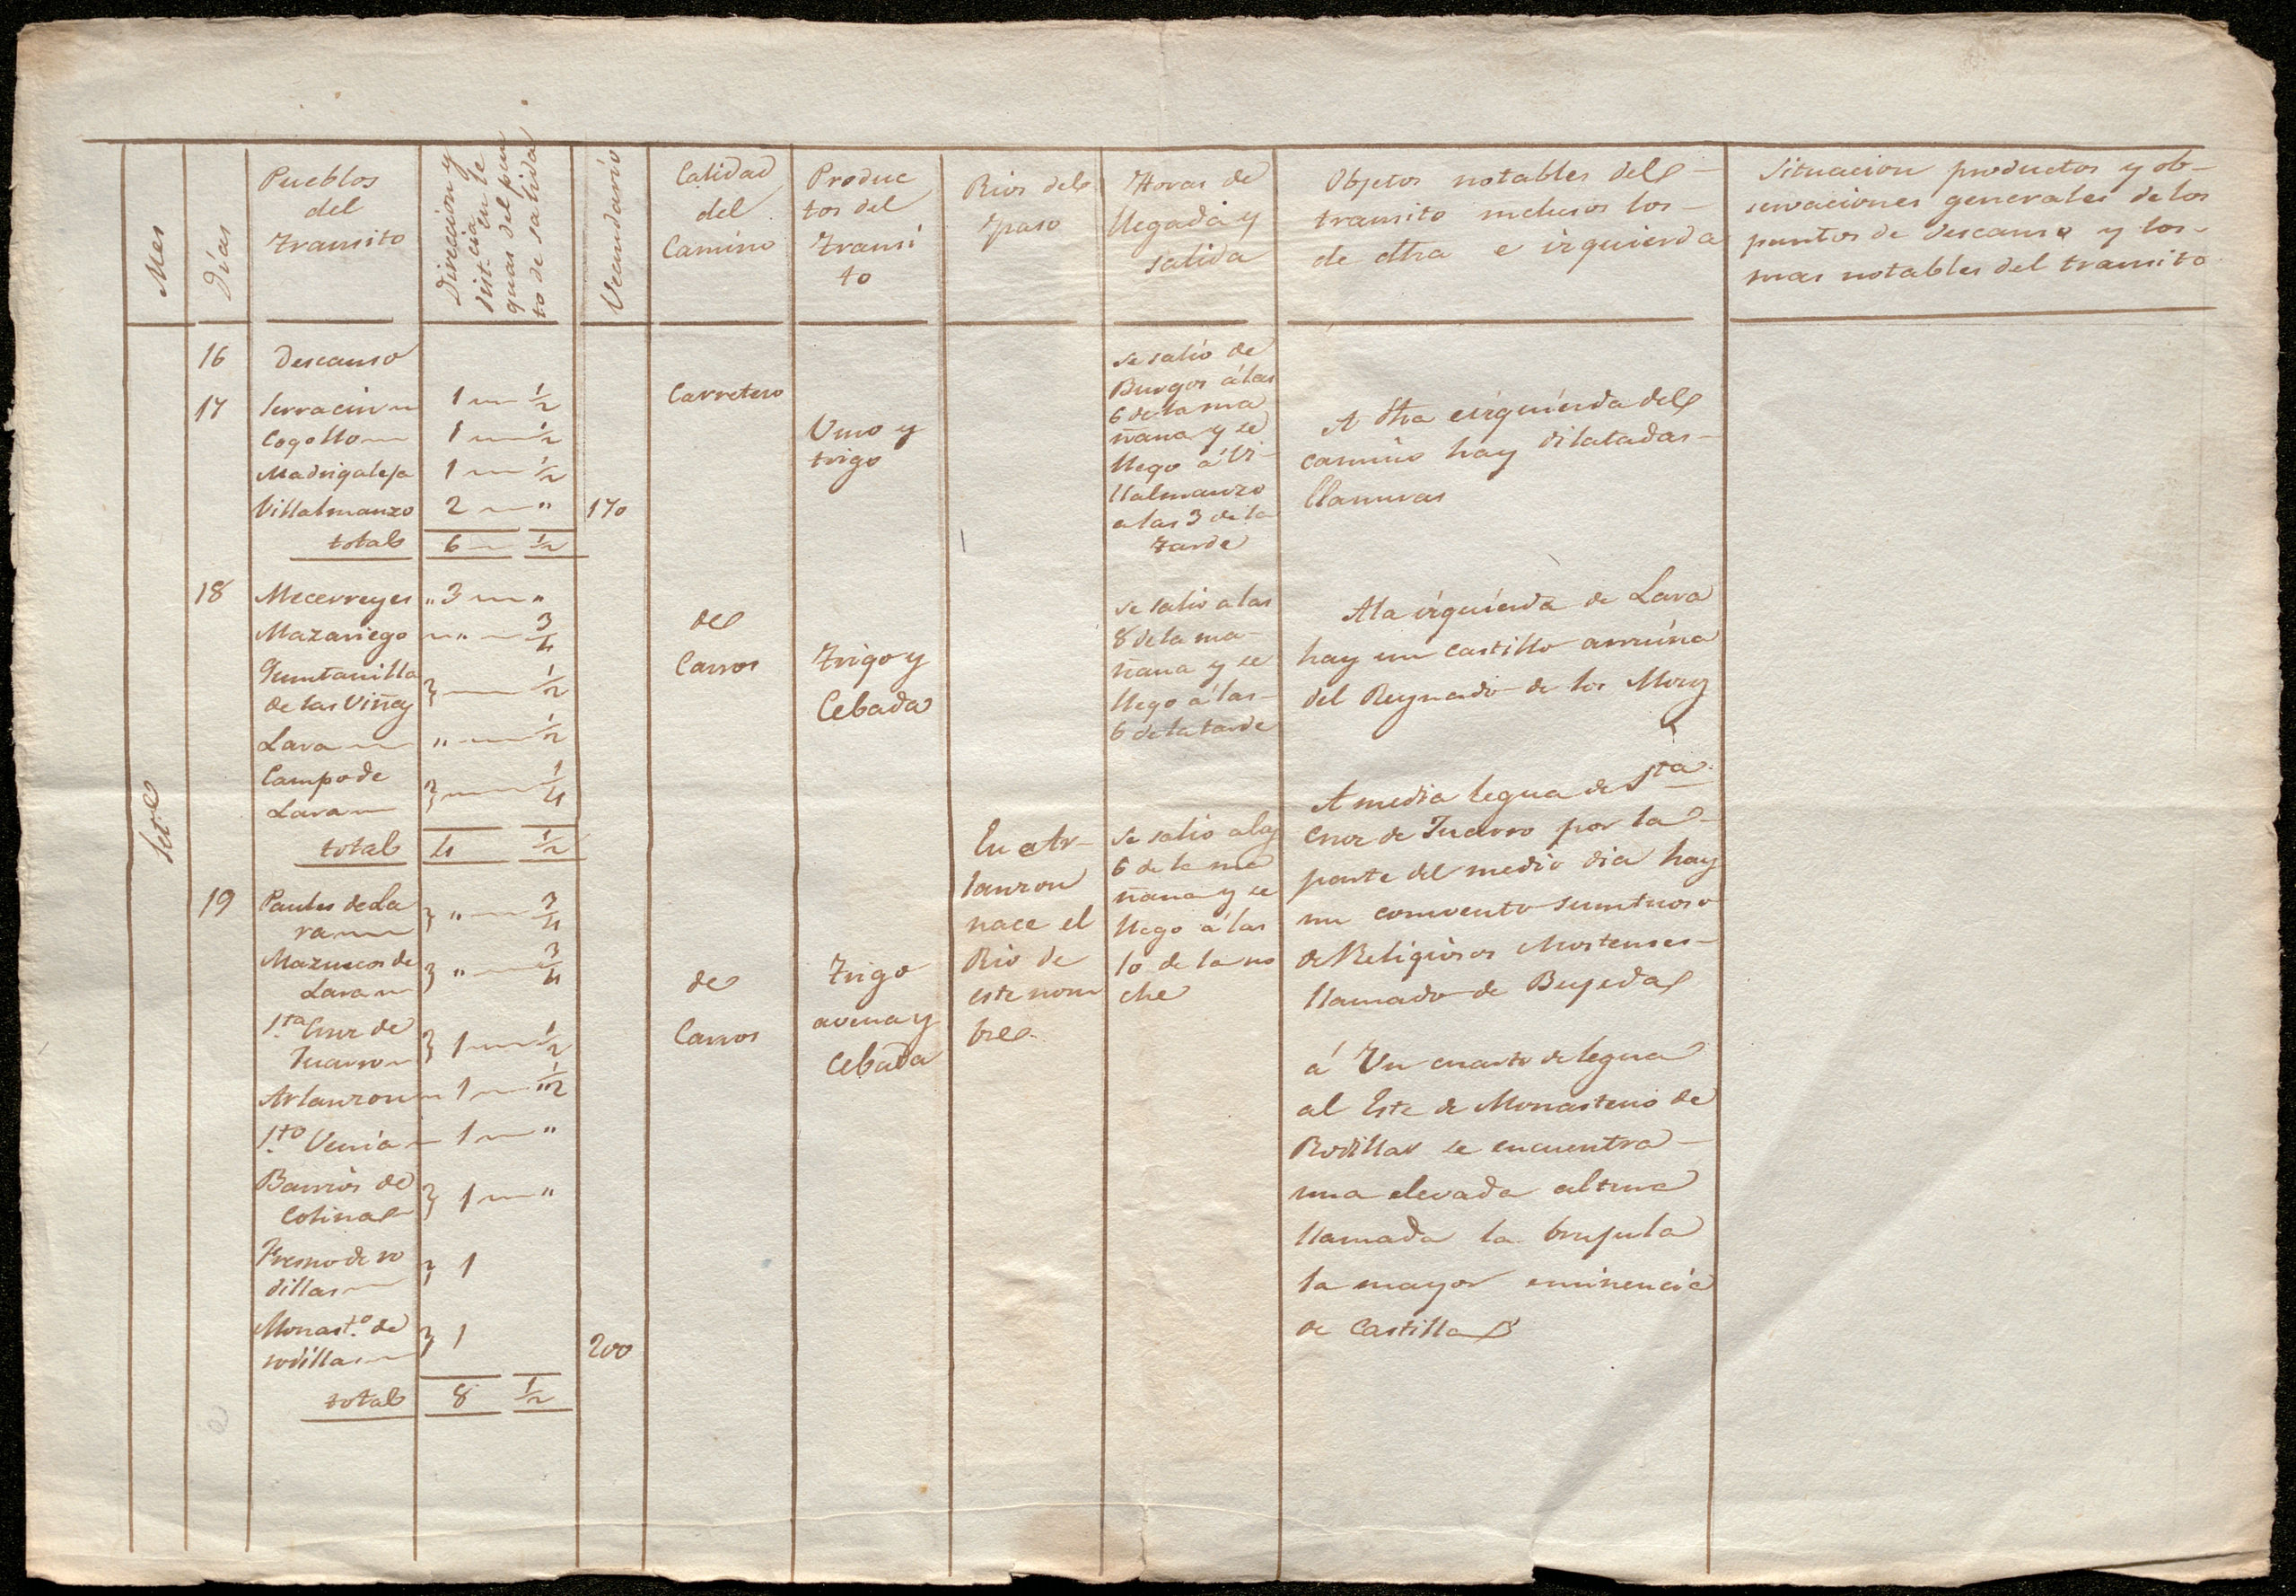 Mes
Dias
Pueblos
del
Transito
Direccion y
dist.cia en le
guas del pun
to de salida
Vecindario
Calidad
del
Camino
Produc
tos del
Transi
to
Rios del
paso
Horas de
llegada y
salida
Objetos notables del
transito inclusos los
de dtra e izquierda
Situacion productos y ob-
servaciones generales de los
puntos de descanso y los
mas notables del transito
Set.e
16 Descanso
17 Sarracin 1 1/2
Cogollo 1 1/2
Madrigaleja 1 1/2
Villalmanzo 2 " 170
total 6 1/2
Carretero
Vino y
trigo
Se salió de
Burgos á las
6 de la ma
ñana y se
llego á Vi-
llalmanzo
a las 3 de la
tarde
A dtra e izquierda del
camino hay dilatadas
llanuras
18 Mecerreyes " 3 "
Mazariego " 3/4
Quintanilla
de las Viñas } 1/2
Lara " 1/2
Campo de
Lara } 1/4
total 4 1/2
de
Carros
Trigo y
Cebada
Se salió a las
8 de la ma-
ñana y se
llego á las
6 de la tarde
A la izquierda de Lara
hay un castillo arruina
del Reynado de los Moros
19 Paules de La
ra } " 3/4
Mazuecos de
Lara } " 3/4
S.ta Cruz de
Juarro } 1 1/2
Arlanzon 1 "1/2
S.to Venia 1 "
Barrios de
Colina } 1 "
Fresno de ro
dillas } 1
Monast.o de
rodilla } 1 200
total 8 1/2
de
Carros
Trigo
avena y
Cebada
En Ar-
lanzon
nace el
Rio de
este nom
bre.
Se salió a las
6 de la ma
ñana y se
llego á las
10 de la no
che
A media legua de S.ta
Cruz de Juarro por la
parte del medio dia hay
un convento sumtuoso
de Religiosos Mostenses
llamado de Bujeda
á Un cuarto de legua
al Este de Monasterio de
Rodillas se encuentra
una elevada altura
llamada la brujula
la mayor eminencia
de Castilla